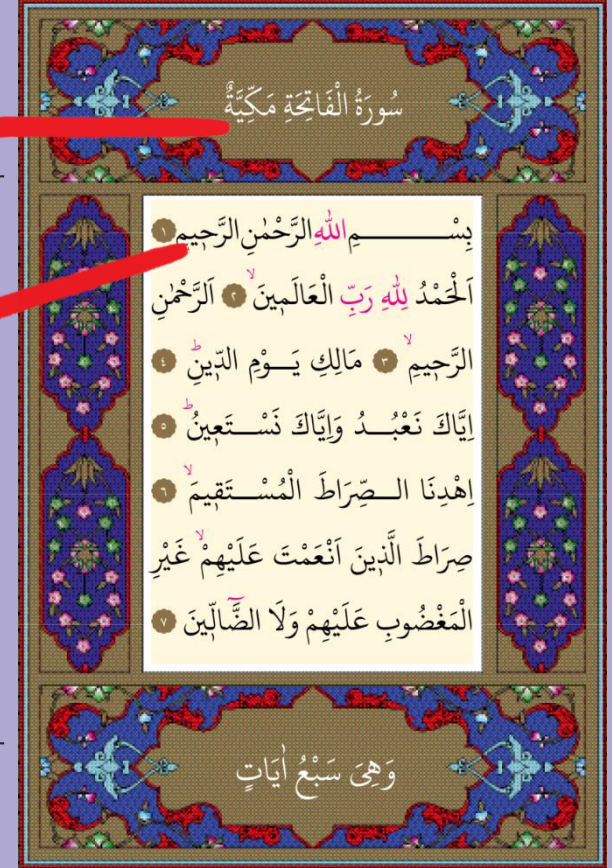 سُورَةُ الْفَاتِحَةِ مَكِّيَّةٌ
بِسْــــــــمِ اللّٰهِ الرَّحْمٰنِ الرَّح۪يمِ ﴿١﴾
اَلْحَمْدُ لِلّٰهِ رَبِّ الْعَالَم۪ينَۙ ﴿٢﴾ اَلرَّحْمٰنِ
الرَّح۪يمِۙ ﴿٣﴾ مَالِكِ يَــوْمِ الدّ۪ينِۜ ﴿٤﴾
اِيَّاكَ نَعْبُــدُ وَاِيَّاكَ نَسْــتَع۪ينُۜ ﴿٥﴾
اِهْدِنَا الــصِّرَاطَ الْمُسْــتَق۪يمَۙ ﴿٦﴾
صِرَاطَ الَّذ۪ينَ اَنْعَمْتَ عَلَيْهِمْۙ غَيْرِ
الْمَغْضُوبِ عَلَيْهِمْ وَلَا الضَّٓالّ۪ينَ ﴿٧﴾
وَهِيَ سَبْعُ اٰيَاتٍ